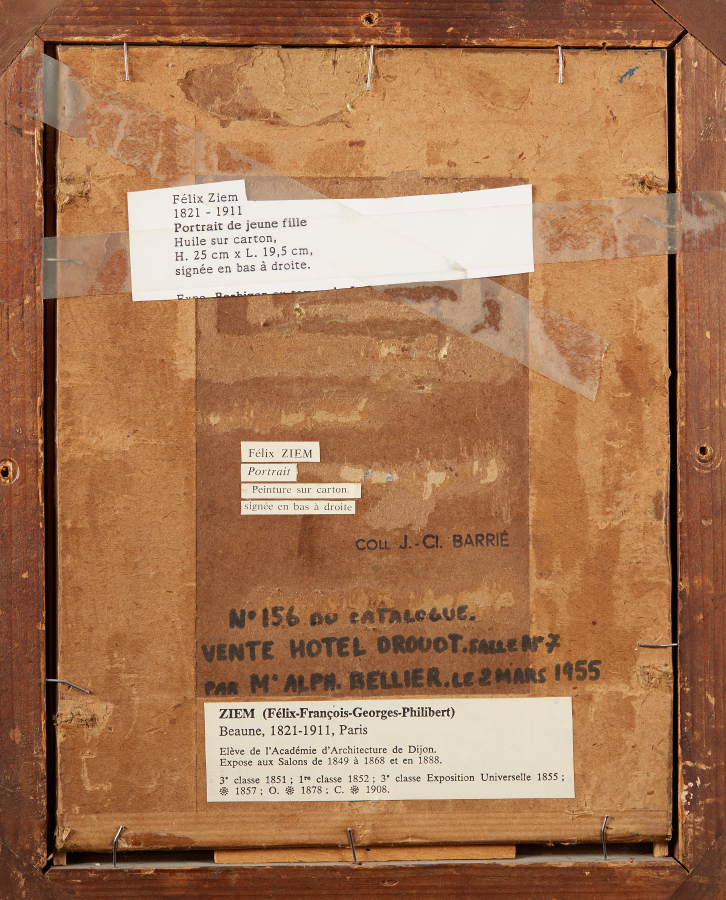 Félix Ziem
1821 - 1911
Portrait de jeune fille
Huile sur carton,
H. 25 cm x L. 19,5 cm,
signée en bas à droite.
Félix ZIEM
Portrait
Peinture sur carton
signée en bas à droite
COLL J.-Cl. BARRIÉ
N° 156 DU CATALOGUE.
VENTE HOTEL DROUOT. SALLE N° 7
PAR Me ALPH. BELLIER. LE 2 MARS 1955
ZIEM (Félix-François-Georges-Philibert)
Beaune, 1821-1911, Paris
Elève de l'Académie d'Architecture de Dijon.
Expose aux Salons de 1849 à 1868 et en 1888.
3e classe 1851 ; 1re classe 1852 ; 3e classe Exposition Universelle 1855 ;
❊ 1857 ; O. ❊ 1878 ; C. ❊ 1908.